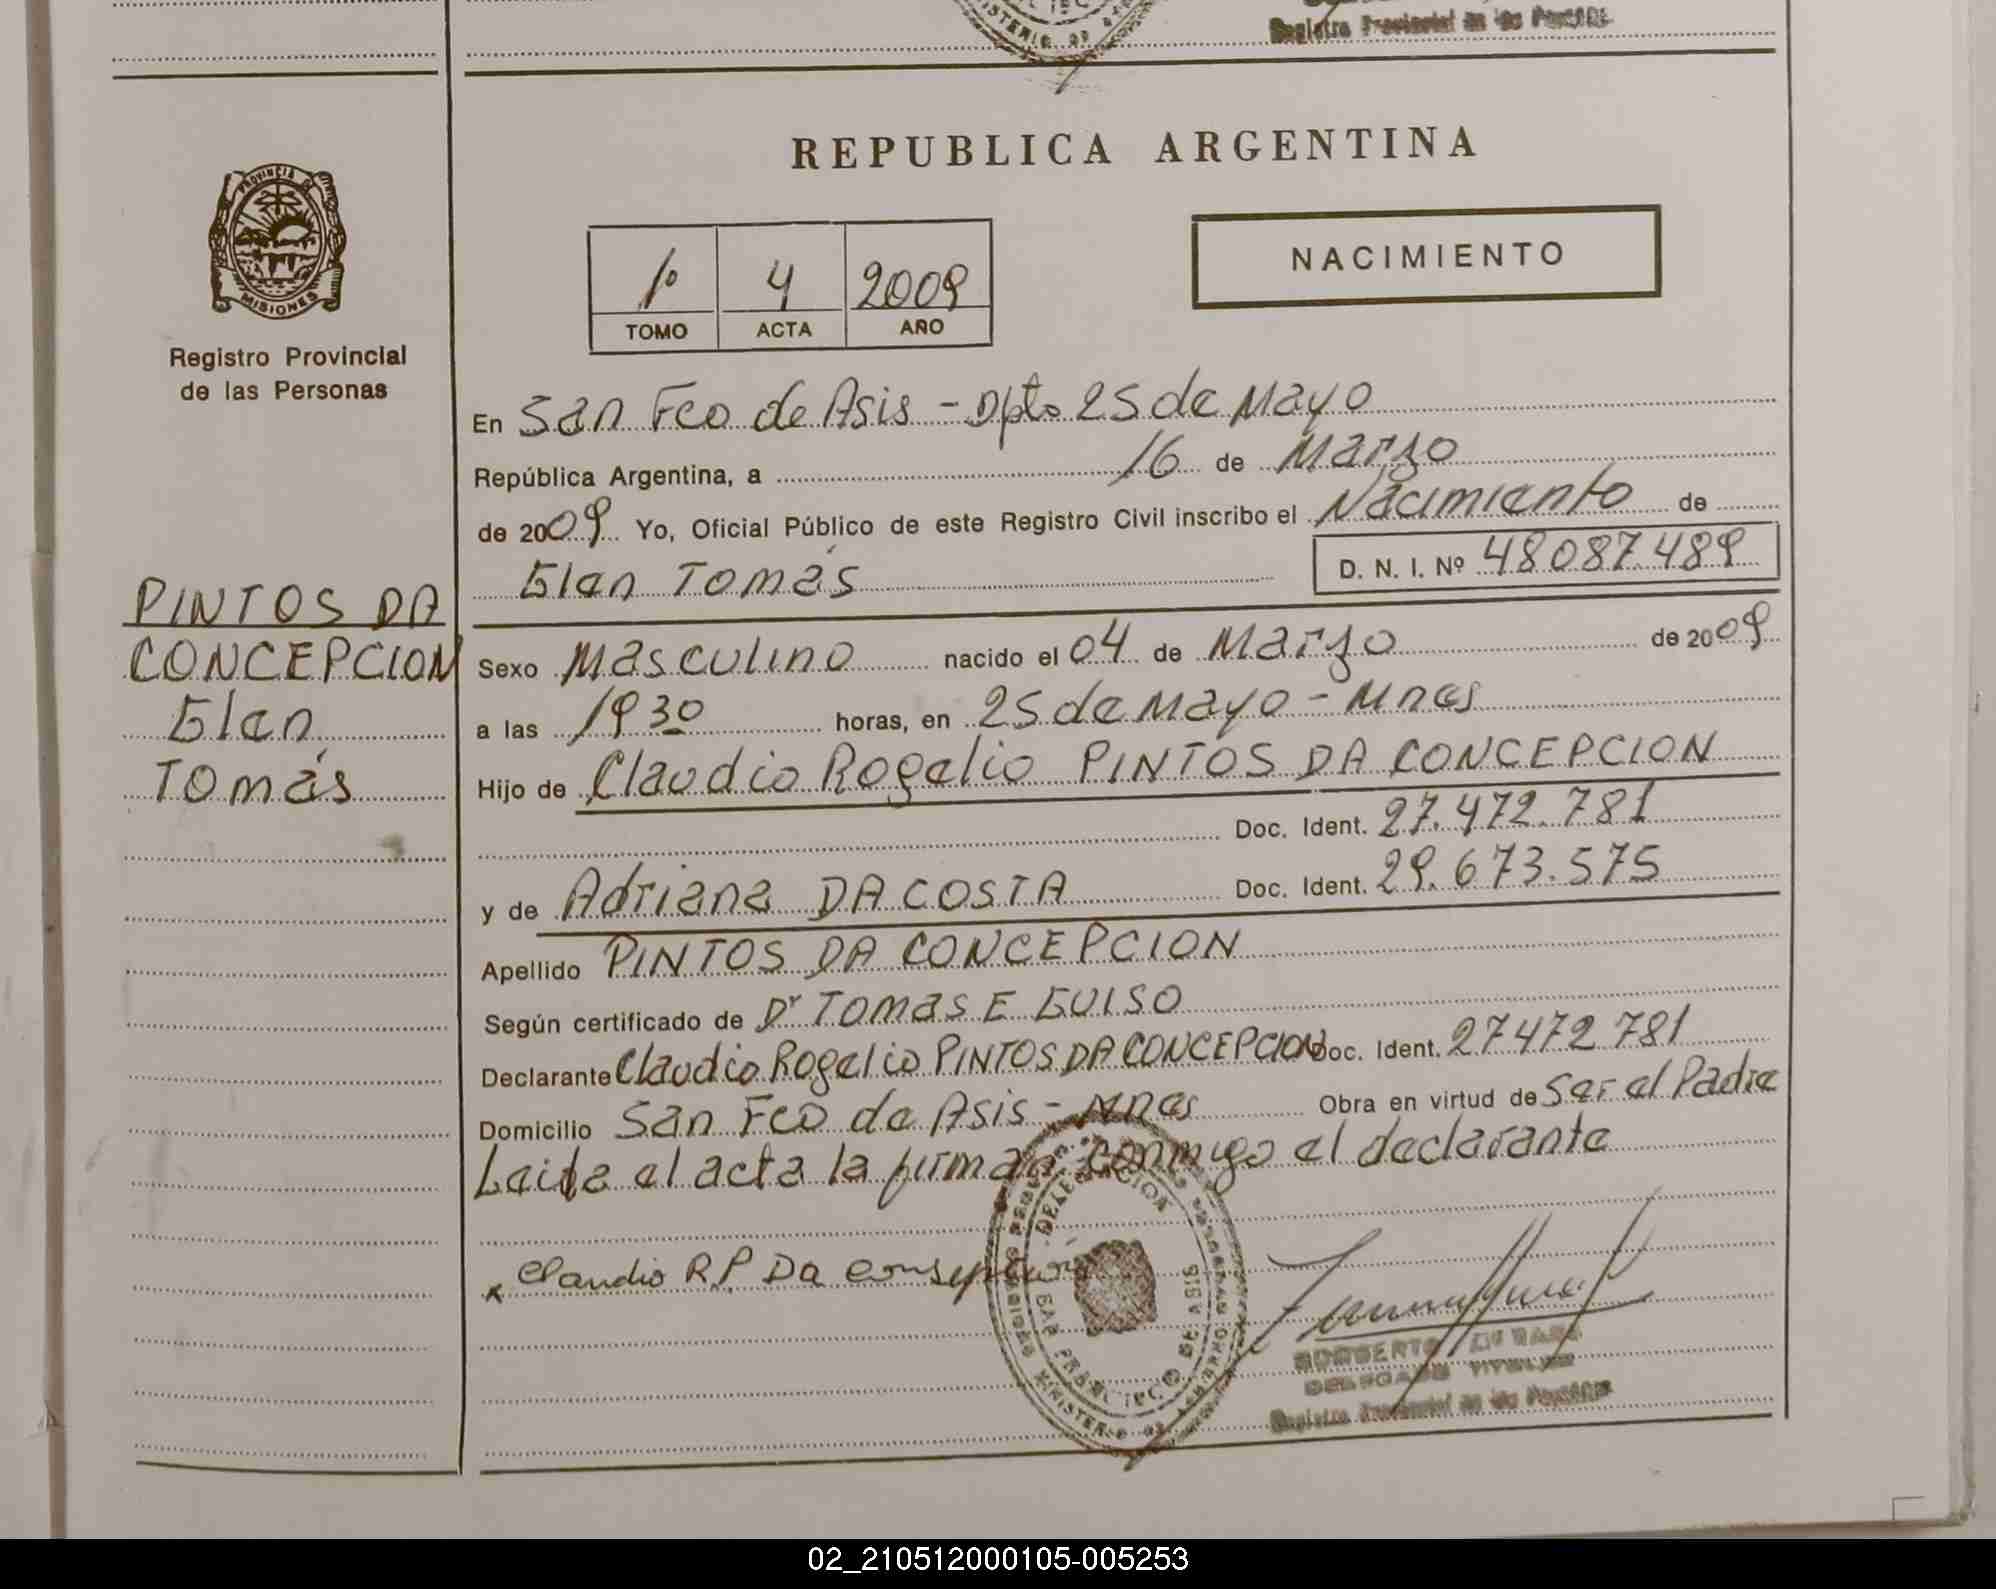 Registro Provincial de las Personas
REPUBLICA ARGENTINA
PROVINCIA DE
MISIONES
Registro Provincial
de las Personas
1º 4 2009
TOMO ACTA AÑO
NACIMIENTO
En San Fco de Asis - Dpto 25 de Mayo
República Argentina, a 16 de Marzo
de 2009 Yo, Oficial Público de este Registro Civil inscribo el Nacimiento de
Elan Tomás D. N. I. Nº 48087.489
PINTOS DA
CONCEPCION
Elan
Tomás
Sexo Masculino nacido el 04 de Marzo de 2009
a las 1930 horas, en 25 de Mayo - Mnes
Hijo de Claudio Rogelio PINTOS DA CONCEPCION
Doc. Ident. 27.472.781
y de Adriana DA COSTA Doc. Ident. 29.673.575
Apellido PINTOS DA CONCEPCION
Según certificado de Dr Tomas E GUISO
Declarante Claudio Rogelio PINTOS DA CONCEPCION Doc. Ident. 27472781
Domicilio San Fco de Asis - Mnes Obra en virtud de Ser el Padre
Leida el acta la firma conmigo el declarante
x Claudio R.P Da Consepción
DELEGACION
SAN FRANCISCO DE ASIS
DELEGADO TITULAR
Registro Provincial de las Personas
02_210512000105-005253